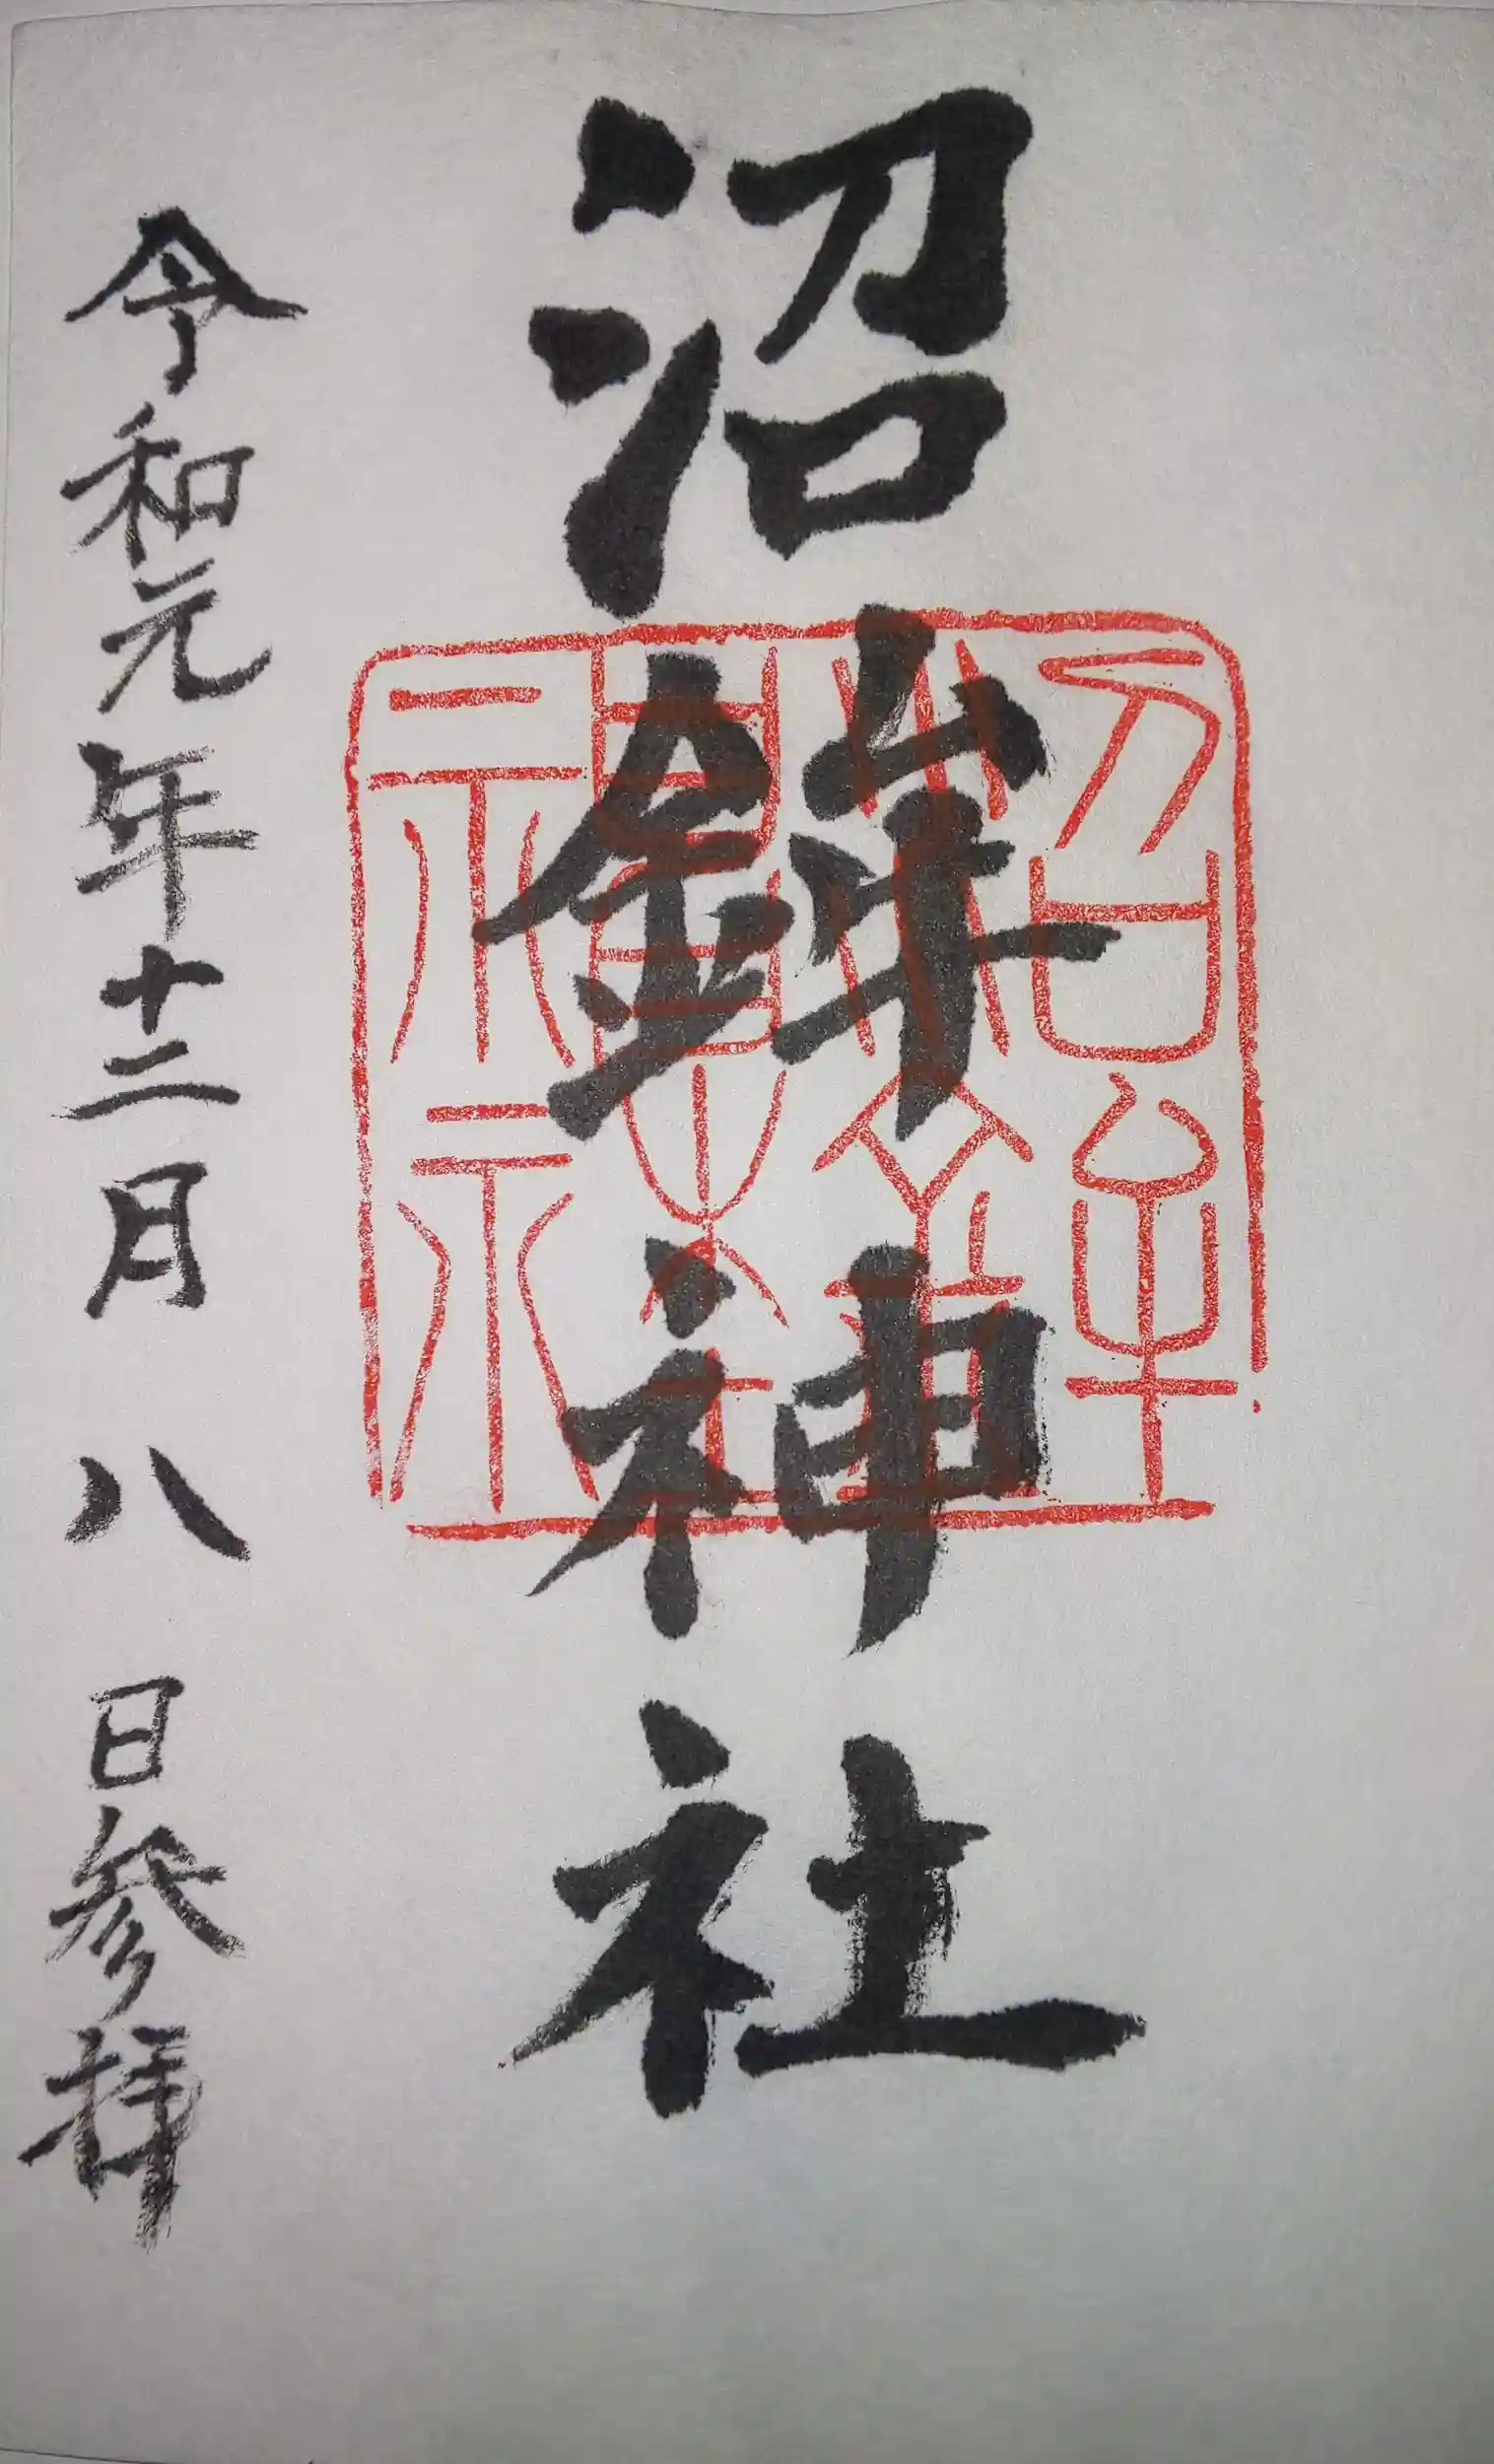 沼鉾神社
令和元年十二月八日参拝